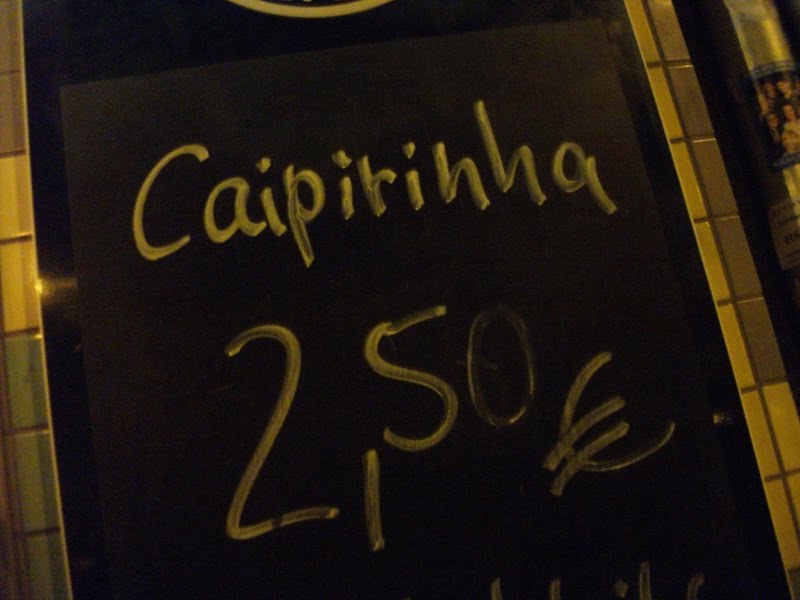 Caipirinha
2,50 €